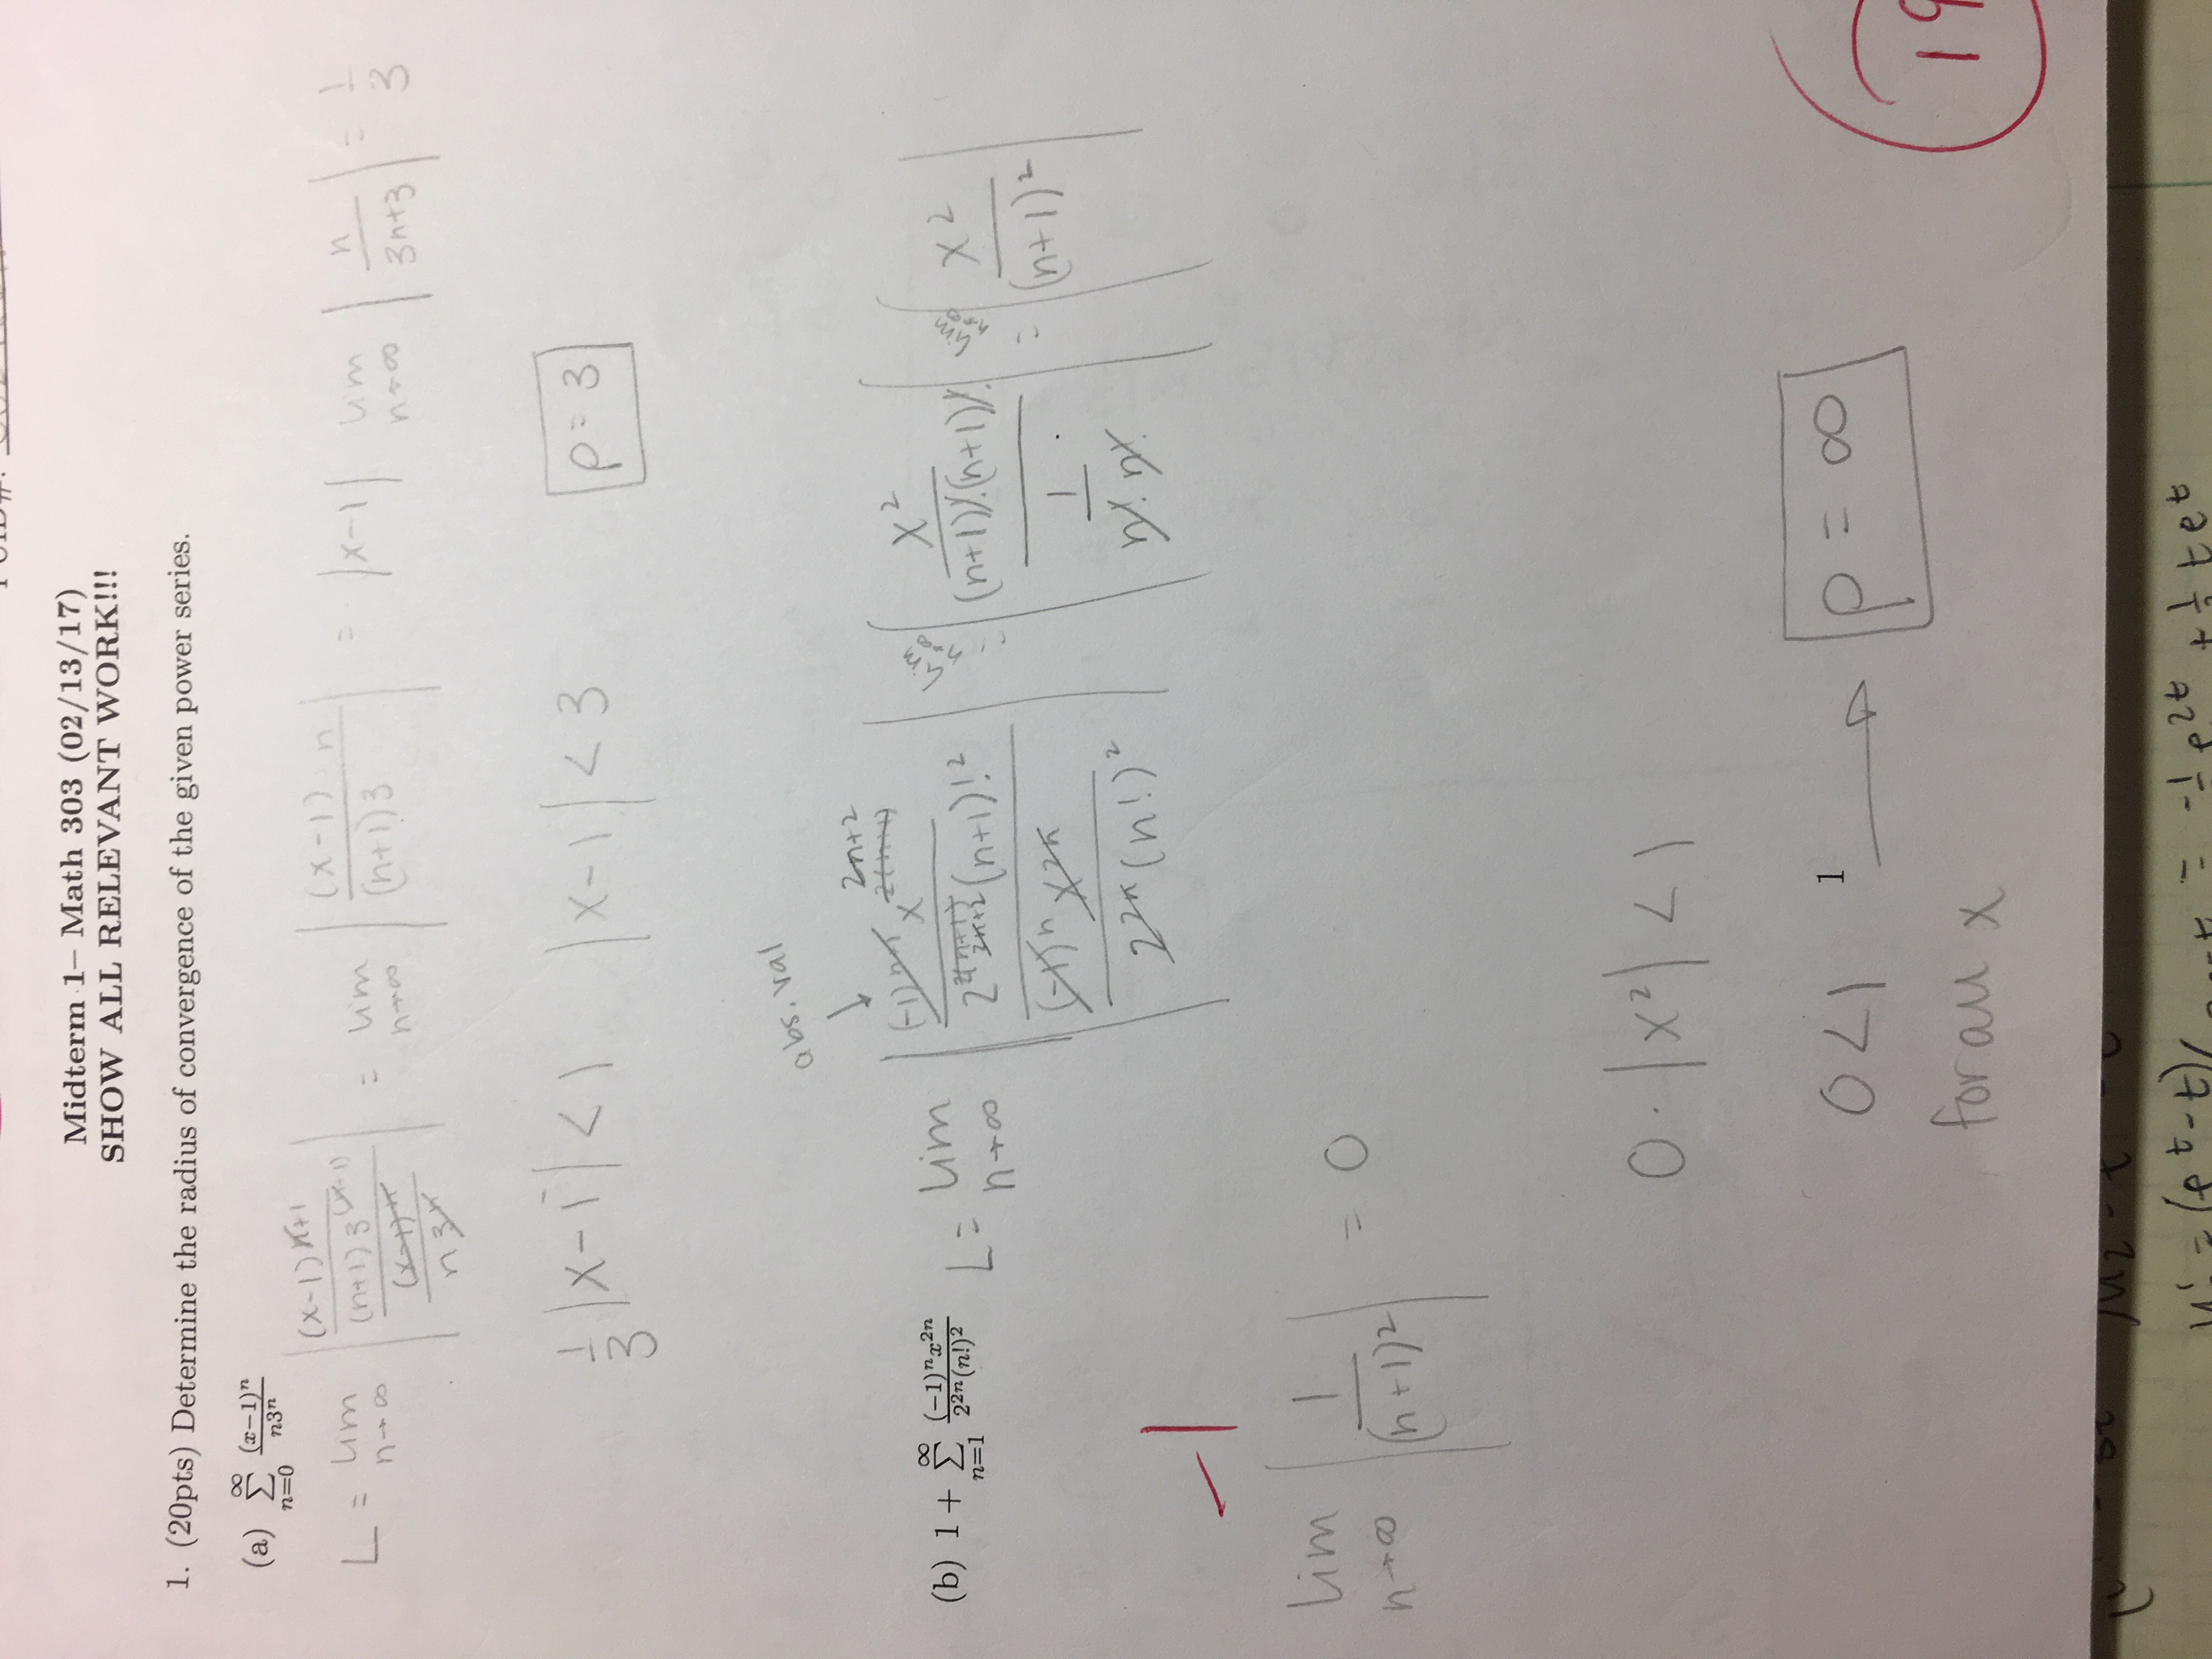 PUID#:
Midterm 1– Math 303 (02/13/17)
SHOW ALL RELEVANT WORK!!!
1. (20pts) Determine the radius of convergence of the given power series.
(a) ∞∑n=0 (x−1)^n / n3^n
L = lim n→∞ | ((x-1)^(n+1) / (n+1)3^(n+1)) / ((x-1)^n / n3^n) | = lim n→∞ | (x-1) n / (n+1)3 | = |x-1| lim n→∞ | n / 3n+3 | = 1/3
1/3 |x-1| < 1   |x-1| < 3   ρ = 3
abs. val
(b) 1 + ∞∑n=1 (−1)^n x^2n / 2^2n (n!)^2   L = lim n→∞ | ((-1)^(n+1) x^(2n+2) / 2^(2n+2) (n+1)!^2) / ((-1)^n x^2n / 2^2n (n!)^2) | = lim n→∞ | (x^2 / (n+1)! (n+1)!) / (1 / n! n!) | = lim n→∞ | x^2 / (n+1)^2 |
-1
lim n→∞ | 1 / (n+1)^2 | = 0
0 · |x^2| < 1
0 < 1   1   → ρ = ∞
for all x
19